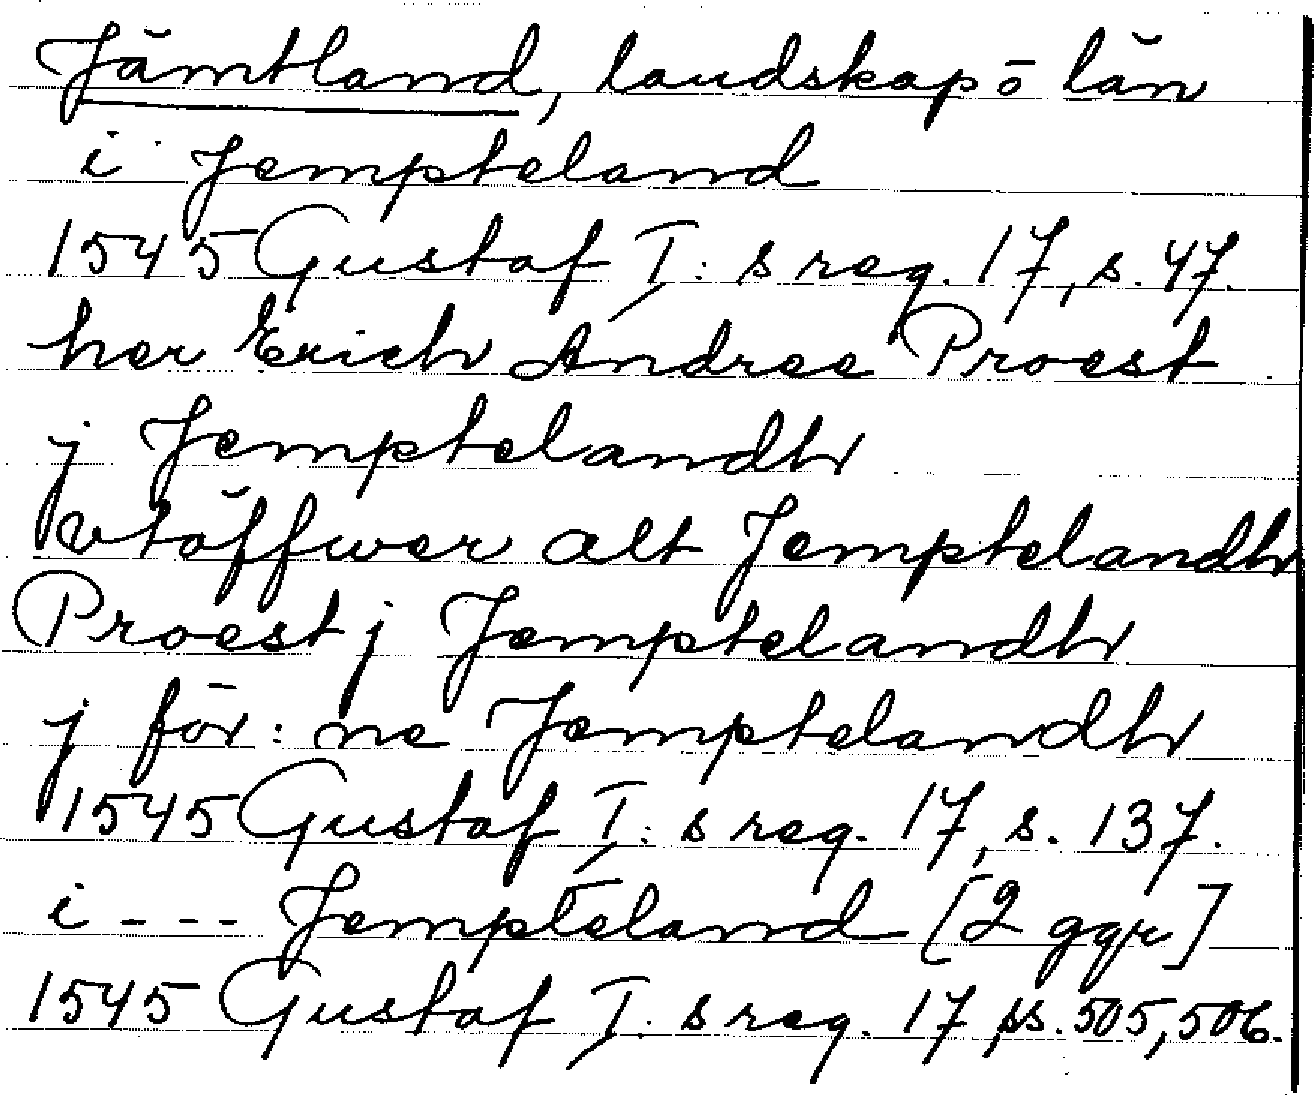 Jämtland, landskap o län
i Jempteland
1545 Gustaf I: s reg. 17, s. 47.
her Erich Andree Proest
j Jemptelandh
vtöffwer alt Jemptelandh
Proest j Jemptelandh
j för: ne Jemptelandh
1545 Gustaf I: s reg. 17, s. 137.
i --- Jempteland [2 ggr]
1545 Gustaf I: s reg. 17, ss. 505, 506.